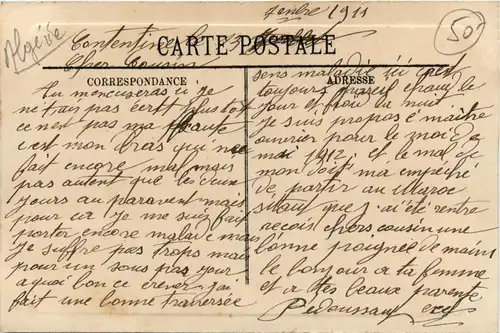 Algérie
7embre 1911
50
Contentine le 13
CARTE POSTALE
Cher Cousin
CORRESPONDANCE
ADRESSE
Tu mencuseras si je
ne t'ai pas ecrit plus tot
ce n'est pas ma faute
c'est mon bras qui me
fait encore mal mais
pas autent que les deux
jours au paravent mais
pour ca je me suis fait
porter encore malade mais
je souffre pas trops mais
pour un sous pas jour
a quoi bon ce crever j'ai
fait une bonne traversée
sens maladie ici c'est
toujours pareil chaug le
jour et froid la nuit
Je suis propos é maitre
ouvrier pour le moi de
mai 1912, et le mal de
mon doit ma empeché
de partir au Maroc
sitaut que j'ai été rentré
recois chers cousin une
bonne poignee de mains
le bonjour a ta femme
et a tes beaux parents